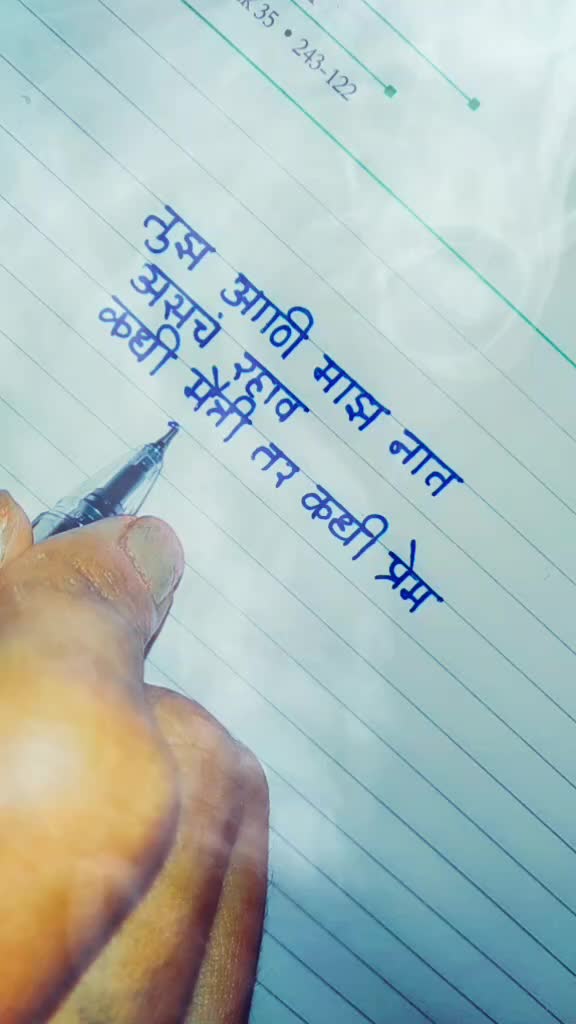 35 • 243-122
तुझ आणि माझ नात
असचं रहाव
कधी मैत्री तर कधी प्रेम